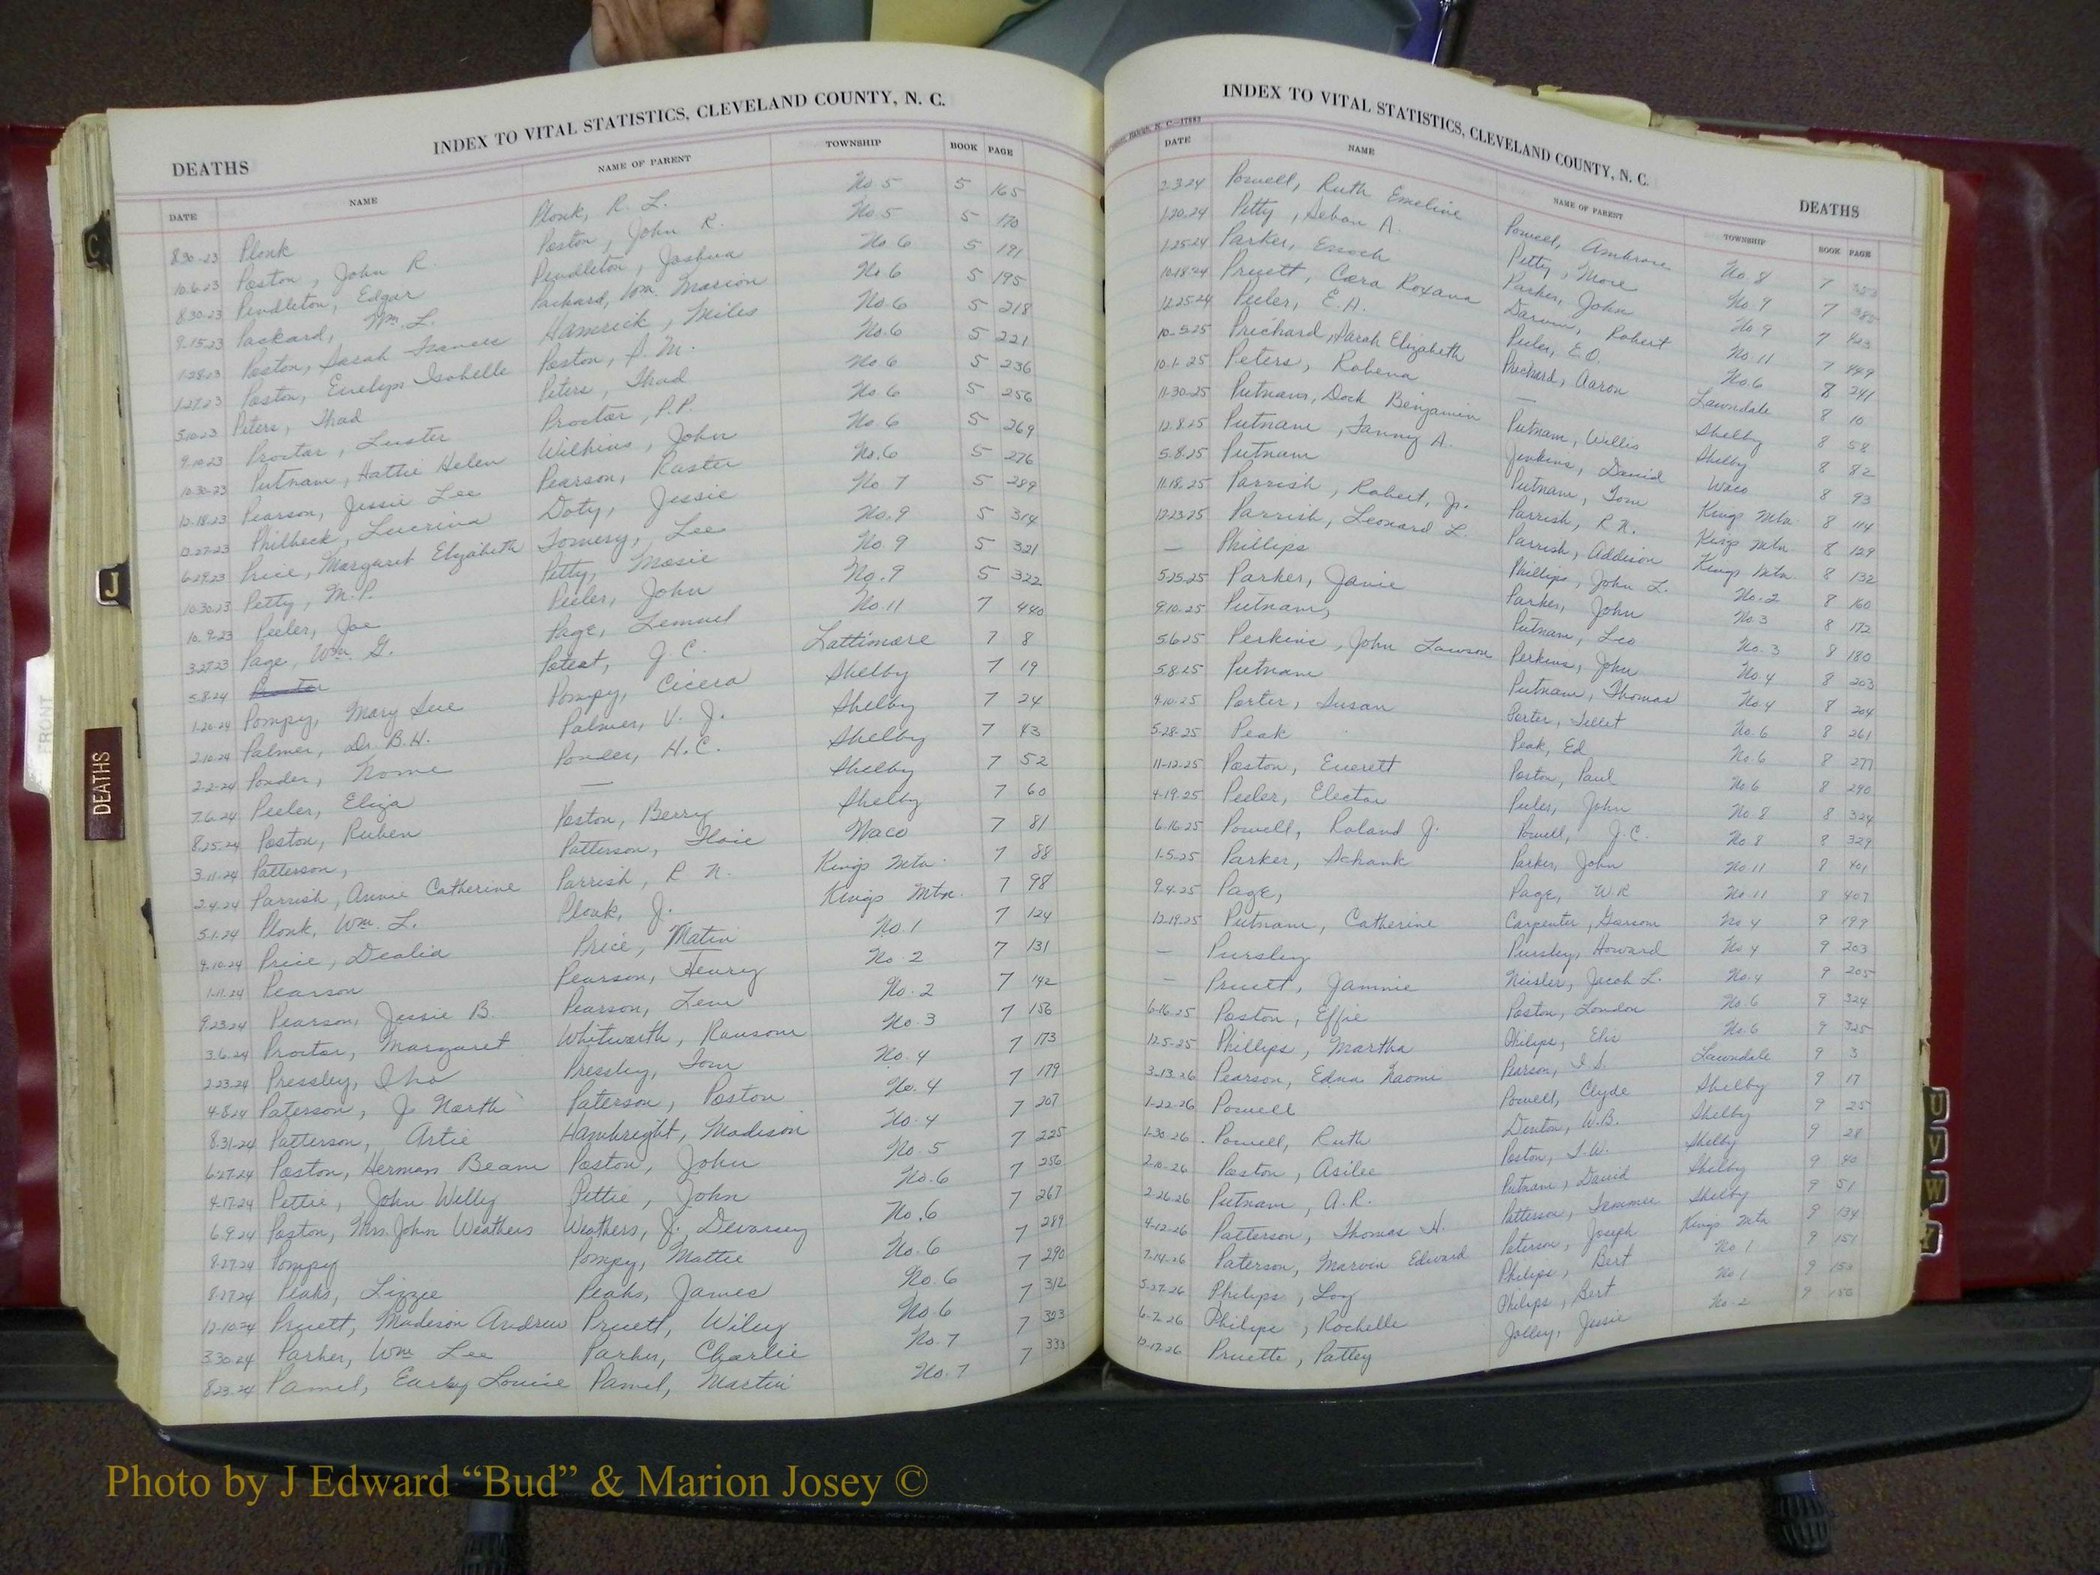 INDEX TO VITAL STATISTICS, CLEVELAND COUNTY, N. C.
DEATHS
DATE NAME NAME OF PARENT TOWNSHIP BOOK PAGE
8-30-23 Plonk Plonk, R. L. No. 5 5 165
10-6-23 Poston, John R. Poston, John R. No. 5 5 170
8-30-23 Pendleton, Edgar Pendleton, Joshua No 6 5 191
9-15-23 Packard, Wm. L. Packard, Wm. Marion No 6 5 195
1-28-23 Poston, Sarah Frances Hamrick, Miles No. 6 5 218
1-27-23 Poston, Evelyn Isobelle Poston, S. M. No. 6 5 221
5-10-23 Peters, Thad Peters, Thad No 6 5 236
9-10-23 Proctor, Luster Proctor, P. P. No 6 5 256
10-30-23 Putnam, Hattie Helen Wilkins, John No 6 5 269
12-18-23 Pearson, Jessie Lee Pearson, Raster No. 6 5 276
12-27-23 Philbeck, Lucrina Doty, Jessie No 7 5 289
6-29-23 Price, Margaret Elizabeth Tomery, Lee No. 9 5 314
10-30-23 Petty, M. P. Petty, Mosie No. 9 5 321
10-9-23 Peeler, Joe Peeler, John No. 9 5 322
3-27-23 Page, Wm. G. Page, Lemuel No. 11 7 440
5-8-24 Poteat, J. C. Lattimore 7 8
1-20-24 Pompy, Mary Sue Pompy, Cicero Shelby 7 19
2-10-24 Palmer, Dr. B. H. Palmer, V. J. Shelby 7 24
2-2-24 Ponder, Nome Ponder, H. C. Shelby 7 43
7-6-24 Peeler, Eliza — Shelby 7 52
8-25-24 Poston, Ruben Poston, Berry Shelby 7 60
3-11-24 Patterson, Patterson, Floie Waco 7 81
2-4-24 Parrish, Annie Catherine Parrish, R. N. Kings Mtn. 7 88
5-1-24 Plonk, Wm. L. Plonk, J. Kings Mtn. 7 98
9-10-24 Price, Dealia Price, Matin No. 1 7 124
1-11-24 Pearson Pearson, Henry No 2 7 131
9-23-24 Pearson, Jessie B. Pearson, Lem No. 2 7 142
3-6-24 Proctor, Margaret Whitworth, Ransom No. 3 7 156
2-23-24 Pressley, Iho Pressley, Tom No. 4 7 173
4-8-24 Paterson, J. North Paterson, Poston No. 4 7 179
8-31-24 Patterson, Artie Hambright, Madison No. 4 7 207
6-27-24 Poston, Herman Beam Poston, John No. 5 7 225
4-17-24 Pettie, John Willy Pettie, John No. 6 7 256
6-9-24 Poston, Mrs. John Weathers Weathers, J. No. 6 7 267
8-27-24 Pompy Pompy, Mattie No. 6 7 289
8-17-24 Peaks, Lizzie Peaks, James No. 6 7 290
12-10-24 Pruett, Madison Andrew Pruett, Wiley No. 6 7 312
3-30-24 Parker, Wm Lee Parker, Charlie No. 7 7 323
8-23-24 Pamel, Early Louise Pamel, Martin No. 7 7 333
INDEX TO VITAL STATISTICS, CLEVELAND COUNTY, N. C.
DEATHS
DATE NAME NAME OF PARENT TOWNSHIP BOOK PAGE
2-3-24 Powell, Ruth Emeline Powell, Ambrose No. 8 7 353
1-20-24 Petty, Seban A. Petty, More No. 9 7 385
1-25-24 Parker, Enoch Parker, John No 9 7 423
10-18-24 Pruett, Cora Roxana Robert No. 11 7 449
12-25-24 Peeler, E. A. Peeler, E. O. No. 6 8 241
10-5-25 Prichard, Sarah Elizabeth Prichard, Aaron Lawndale 8 10
10-1-25 Peters, Robena — Shelby 8 58
11-30-25 Putnam, Dock Benjamin Putnam, Willis Shelby 8 82
12-8-25 Putnam, Fanny A. Jenkins, David Waco 8 93
5-8-25 Putnam Putnam, Tom Kings Mtn 8 114
11-18-25 Parrish, Robert, Jr. Parrish, R. N. Kings Mtn. 8 129
12-23-25 Parrish, Leonard L. Parrish, Addison Kings Mtn. 8 132
— Phillips Phillips, John L. No. 2 8 160
5-25-25 Parker, Janie Parker, John No. 3 8 172
9-10-25 Putnam, Putnam, Leo No. 3 8 180
5-6-25 Perkins, John Lawson Perkins, John No. 4 8 203
5-8-25 Putnam Putnam, Thomas No. 4 8 204
4-10-25 Porter, Susan Porter, No. 6 8 261
5-28-25 Peak Peak, Ed No. 6 8 277
11-12-25 Poston, Everett Poston, Paul No 6 8 290
4-19-25 Peeler, Elector Peeler, John No. 8 8 324
6-16-25 Powell, Roland J. Powell, J. C. No 8 8 329
1-5-25 Parker, Schank Parker, John No 11 8 401
9-4-25 Page, Page, W R No. 11 8 407
12-19-25 Putnam, Catherine Carpenter, No 4 9 199
— Pursley Pursley, Howard No. 4 9 203
— Pruett, Jammie Neisler, Jacob L. No. 4 9 205
6-16-25 Poston, Effie Poston, London No 6 9 324
12-5-25 Phillips, Martha Philips, Eli No. 6 9 325
3-13-26 Pearson, Edna Naomi Pearson, I. S. Lawndale 9 3
1-22-26 Powell Powell, Clyde Shelby 9 17
1-30-26 Powell, Ruth Denton, W. B. Shelby 9 25
2-10-26 Poston, Asilee Poston, T. W. Shelby 9 28
2-26-26 Putnam, A. R. Putnam, David Shelby 9 40
4-12-26 Patterson, Thomas H. Patterson, Shelby 9 51
7-14-26 Paterson, Marvin Edward Paterson, Joseph Kings Mtn 9 134
5-27-26 Philips, Loy Philips, Bert No 1 9 151
6-7-26 Philips, Rochelle Philips, Bert No 1 9 153
12-17-26 Pruette, Pattey Jolley, Jessie No. 2 9
C
J
DEATHS
FRONT
U
V
W
Y
Photo by J Edward “Bud” & Marion Josey ©